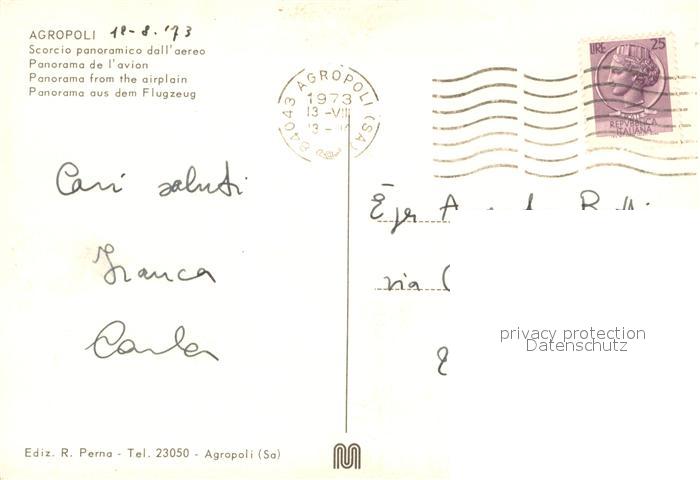 AGROPOLI 12-8.'73
Scorcio panoramico dall'aereo
Panorama de l'avion
Panorama from the airplain
Panorama aus dem Flugzeug
84043 AGROPOLI (SA)
1973
13 -VIII
13 -
LIRE 25
REPVBBLICA
ITALIANA
Cari saluti
Franca
Carla
Egr
via
privacy protection
Datenschutz
Ediz. R. Perna - Tel. 23050 - Agropoli (Sa)